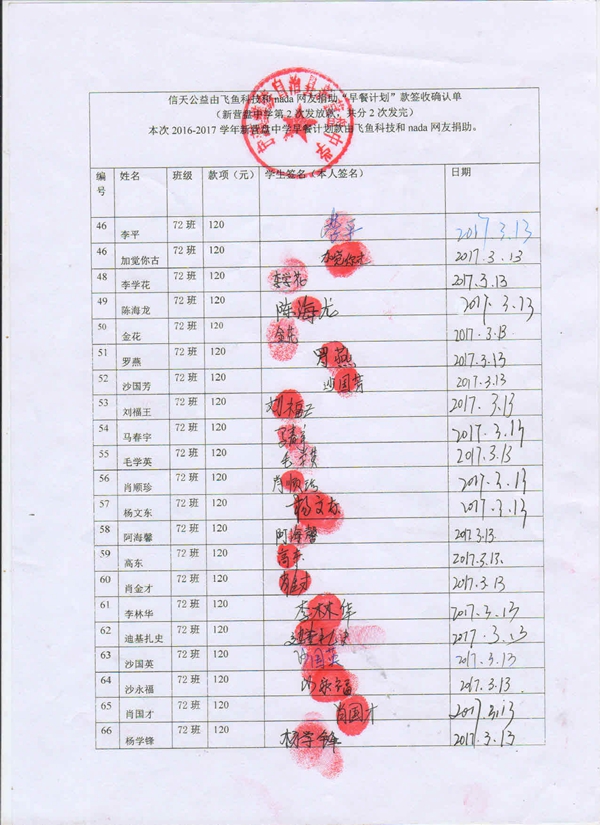 信天公益由飞鱼科技和nada网友捐助“早餐计划”款签收确认单
（新营盘中学第2次发放款，共分2次发完）
本次2016-2017学年新营盘中学早餐计划款由飞鱼科技和nada网友捐助。
编号 姓名 班级 款项（元） 学生签名（本人签名） 日期
46 李平 72班 120 李平 2017.3.13
46 加觉你古 72班 120 2017.3.13
48 李学花 72班 120 李学花 2017.3.13
49 陈海龙 72班 120 陈海龙 2017.3.13
50 金花 72班 120 金花 2017.3.13
51 罗燕 72班 120 罗燕 2017.3.13
52 沙国芳 72班 120 沙国芳 2017.3.13
53 刘福王 72班 120 刘福王 2017.3.13
54 马春宇 72班 120 马春宇 2017.3.13
55 毛学英 72班 120 毛学英 2017.3.13
56 肖顺珍 72班 120 肖顺珍 2017.3.13
57 杨文东 72班 120 杨文东 2017.3.13
58 阿海馨 72班 120 阿海馨 2017.3.13
59 高东 72班 120 高东 2017.3.13.
60 肖金才 72班 120 肖金才 2017.3.13
61 李林华 72班 120 李林华 2017.3.13
62 迪基扎史 72班 120 2017.3.13
63 沙国英 72班 120 沙国英 2017.3.13
64 沙永福 72班 120 沙永福 2017.3.13
65 肖国才 72班 120 肖国才 2017.3.13
66 杨学锋 72班 120 杨学锋 2017.3.13